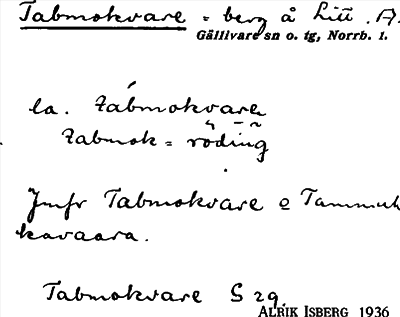 Tabmokvare = berg å Litt. A.
Gällivare sn o. tg, Norrb. l.
la. tábmokvare
tabmok = röding
Jmfr Tabmokvare o Tammuk
kavaara.
Tabmokvare S 29.
ALRIK ISBERG 1936